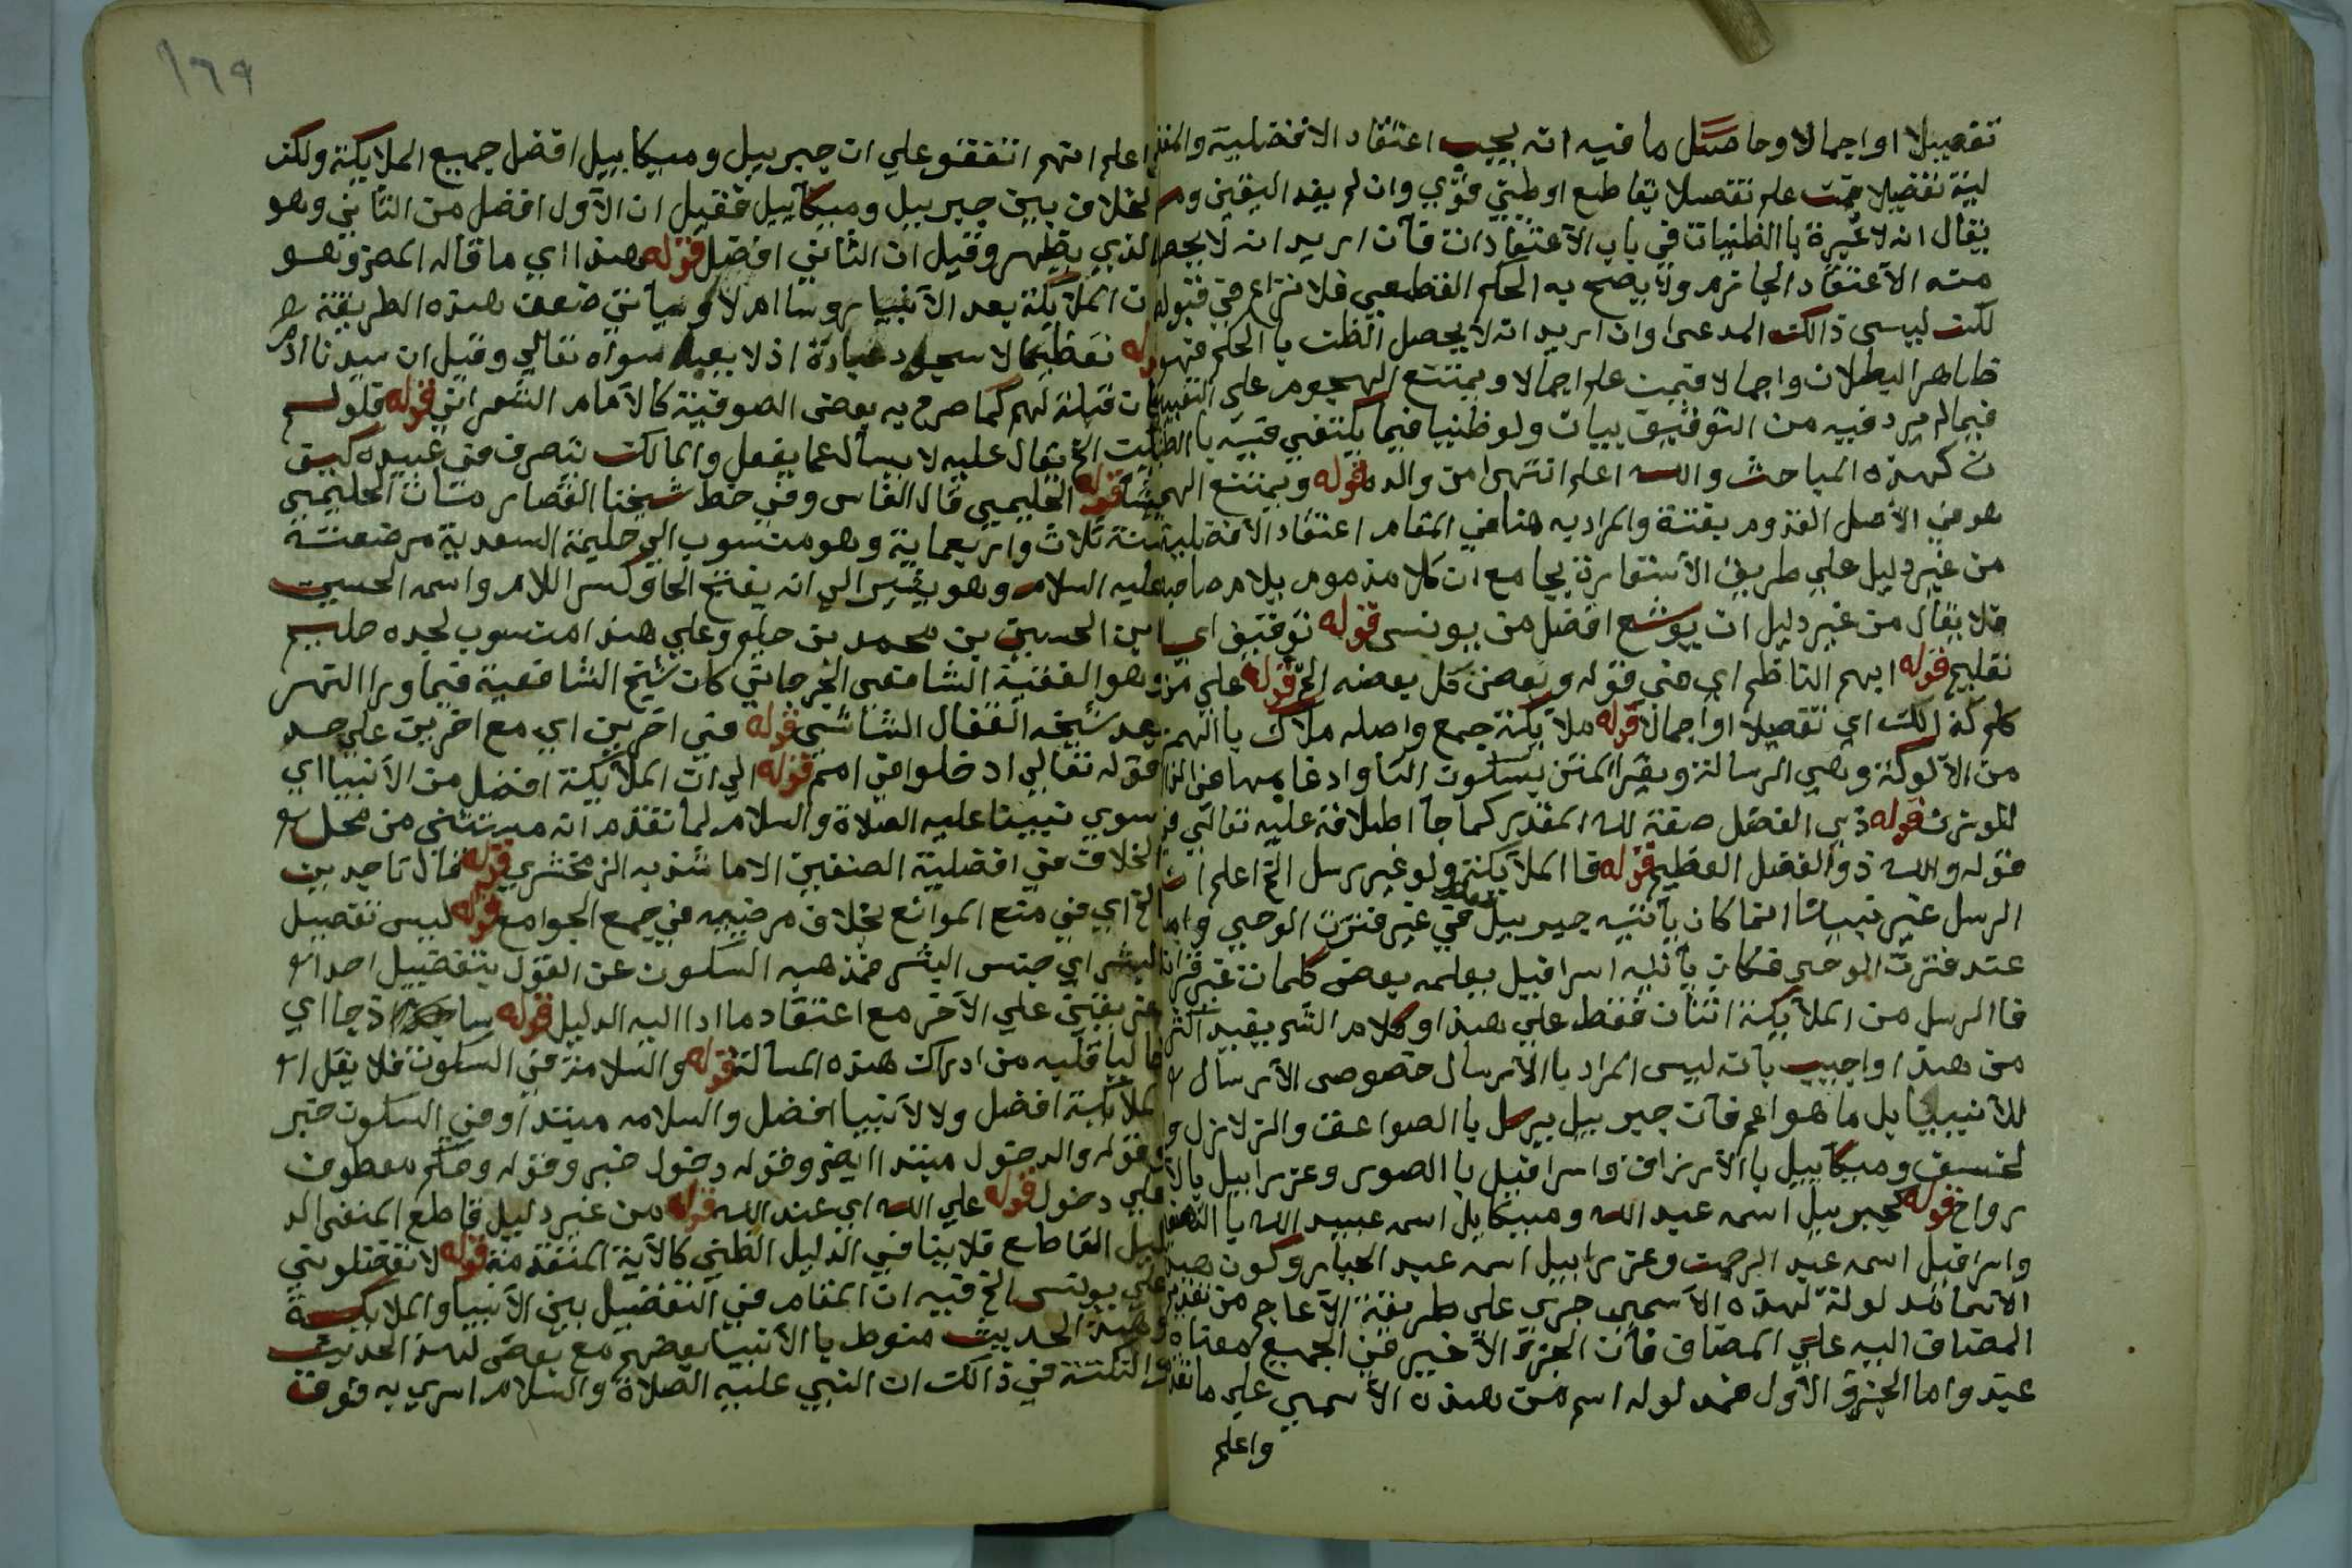 تفصيلا او اجمالا وحاصل ما فيه انه يجب اعتقاد الافضلية
لية تفضيلا فمن علم تفصيلا بقاطع او ظني قوي وان لم يفد اليقين
يقال انه لا عبرة با الظنيات في باب الآعتقادات فآن اريد انه لا يحصل
منه الآعتقاد الجازم ولا يصح به الحكم القطعي فلا نزاع في قبوله
لكن ليسى ذالك المدعى وان اريد انه لا يحصل الظن با الحكم فهو
ظاهر البطلان واجمالا فيمن علم اجمالا ويمتنع الهجوم على
فيما لم يرد فيه من التوقيف بيان ولو ظنيا فيما يكتفي فيه با
ن كهذه المباحث والله اعلم انتهى من والده قوله ويمتنع
هو في الأصل القدوم بغتة والمراد به هنا في المقام اعتقاد الافضلية
من غير دليل على طريق الأستعارة بجامع ان كلا مذموم يلام صاحبه
فلا يقال من غير دليل ان يوشع افضل من يونسى قوله توقيف اي
تعليم قوله ابهم الناظم اي في قوله وبعض كل بعضه الخ قوله على من
كلم كذالك اي تفصيلا او اجمالا قوله ملآيكة جمع واصله ملاك با الهمز
من الآلوكة وهي الرسالة ويقرا المتن بسكون التا وادغامها في
للوزن قوله ذي الفضل صفة لله المقدر كما جآ اطلاقه عليه تعالى في
قوله والله ذو الفضل العظيم قوله فا الملآيكة ولو غير رسل الخ اعلم ان
الرسل غير نبينا انما كان يآتيه جبرييل في غير فترت الوحي واما
عند فترت الوحى فكان يآتيه اسرافيل يعلمه بعض كلمات غير قران
فا الرسل من الملآيكة اثنان فقط على هذا وكلام الشر يفيد اكثر
من هذا واجيب بآنه ليس المراد با الآرسال خصوصى الآرسال
للآنبيا بل ما هو اعم فآن جبرييل يرسل با الصواعق والزلازل و
لخسف وميكآييل با الآرزاق واسرافيل با الصور وعزراييل با
رواح قوله كجبرييل اسمه عبد الله وميكايل اسمه عبيد الله با
واسرافيل اسمه عبد الرحمن وعزراييل اسمه عبد الجبار وكون
الآسمآ مدلولة لهذه الآسمى جرى على طريقة الآعاجم من تقديم
المضاف اليه على المضاف فآن الجزء الآخير في الجميع معناه
عبد واما الجزو الآول فمدلوله اسم من هذه الآسمى على ما
واعلم
١٦٩
اعلم انهم اتفقو على ان جبرييل وميكاييل افضل جميع الملايكة ولكن
لخلاف بين جبرييل وميكآييل فقيل ان الآول افضل من الثاني وهو
الذي يظهر وقيل ان الثاني افضل قوله هذا اي ما قاله المص وهو
ن الملآيكة بعد الآنبيا روسا ام لا وسيآتي ضعف هذه الطريقة
تعظيما لا سجود عبادة اذ لا يعبد سواه تعالى وقيل ان سيدنا ادم
ان قبلة لهم كما صرح به بعضى الصوفية كالآمام الشعراني قوله قلو لم
الخ يقال عليه لا يسأل عما يفعل والمالك يتصرف في عبيده كيف
شا قوله الحليمي قال الفاسى وفي خط شيخنا القصار مثات الحليمي
سنة ثلاث واربعماية وهو منسوب الى حليمة السعدية مرضعته
عليه السلام وهو يشير الى انه بفتح الحا وكسر اللام واسمه الحسين
ابن الحسين بن محمد بن حليم وعلى هذا منسوب لجده حليم
وهو الفقيه الشافعى الجرجاني كان شيخ الشافعية فيما ورا النهر
بعد شيخه القفال الشاشي قوله في اخرين اي مع اخرين على حد
قوله تعالى ادخلوا في امم قوله الى ان الملآيكة افضل من الآنبيا اي
سوى نبينا عليه الصلاة والسلام لما تقدم انه مستثنى من محل
الخلاف في افضلية الصنفين الا ما شذ به الزمخشري قوله قال تاجد ين
الخ اي في منع الموانع بخلاف مرضيه في جمع الجوامع قوله ليس تفصيل
البشر اي جنس البشر فمذهبه السكوت عن القول بتفضيل احد
عزيقين على الآخر مع اعتقاد ما ادا اليه الدليل قوله ساذجا اي
خاليا قلبه من ادراك هذه المسالة قوله والسلامة في السكوت فلا يقل
لملآيكة افضل ولا لآنبيا افضل والسلامه مبتدا وفي السكوت خبر
وقوله والدخول مبتدا ايض وقوله دخول خبر وقوله وحكم معطوف
على دخول قوله على الله اي عند الله قوله من غير دليل قاطع المنفى الد
ليل القاطع فلا ينافي الدليل الظني كالآية المتقدمة قوله لا تفضلوني
على يونسى الخ فيه ان المقام في التفضيل بين الآنبيا والملايكة
وهذ الحديث منوط با الآنبيا بعضهم مع بعض لهذ الحديث
والنكتة في ذالك ان النبي عليه الصلاة والسلام اسري به فوق